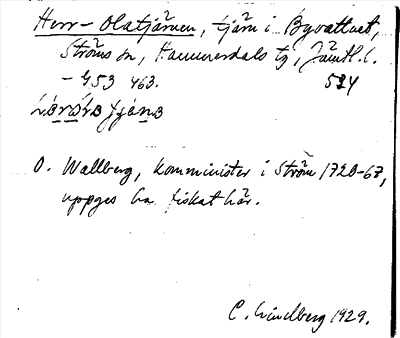 Herr-Olatjärnen, tjärn i Byvattnet,
Ströms sn, Hammerdals tg, Jämtl. l.
- 453 463. 534
O. Wallberg, komminister i Ström 1720-67,
uppges ha fiskat här.
C. Lindberg 1929.